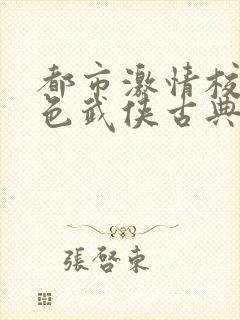 都市激情校
色武侠古典
張啓東